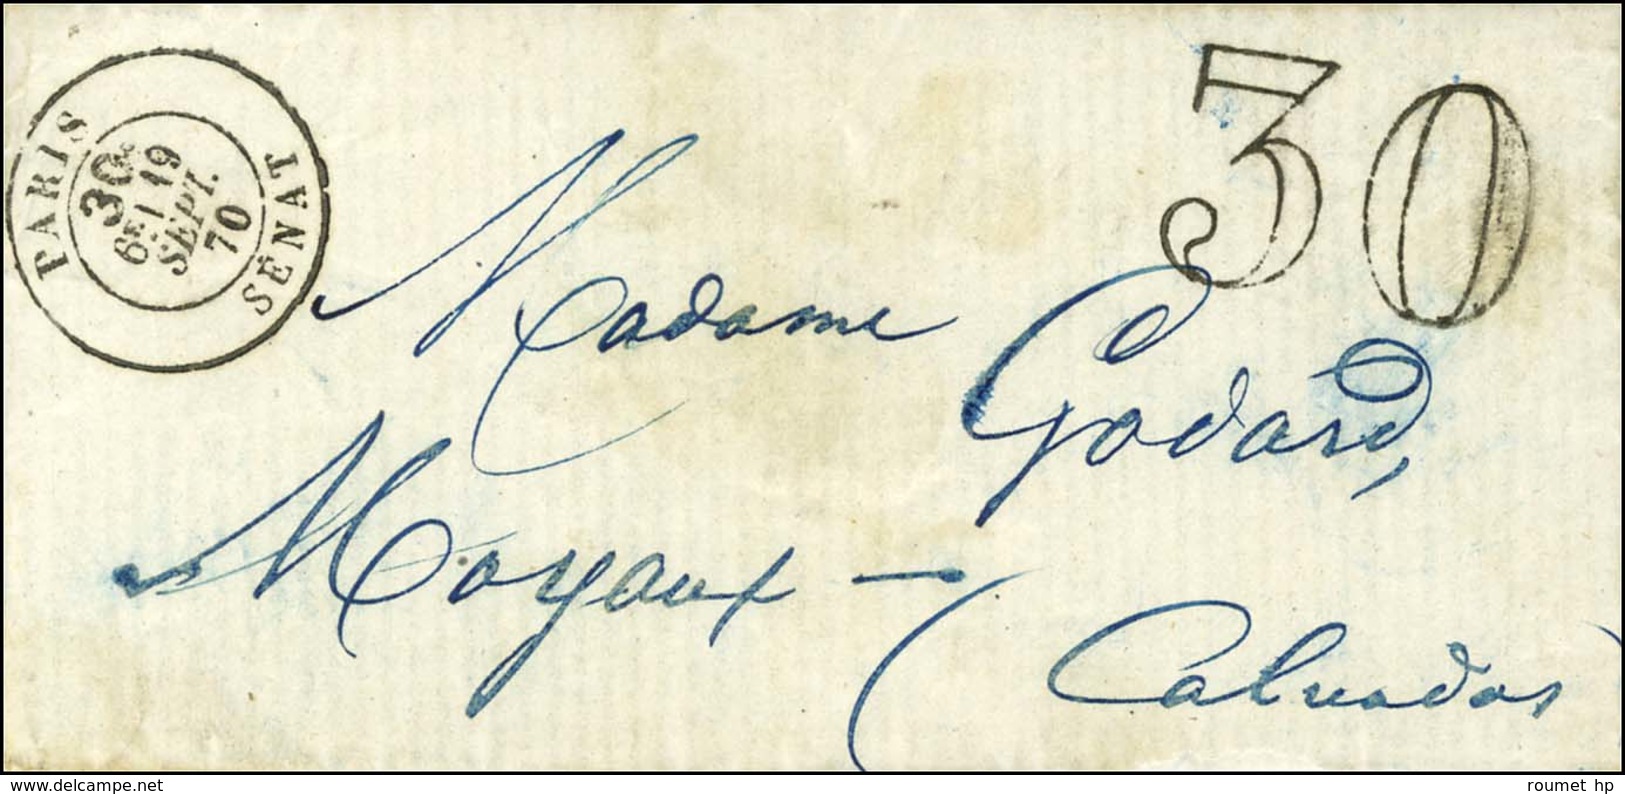 PARIS SÉNAT
6E/ 19
SEPT.
70
30
Madame Godard,
Moyaux —
(Calvados)
www.delcampe.net
roumet hp